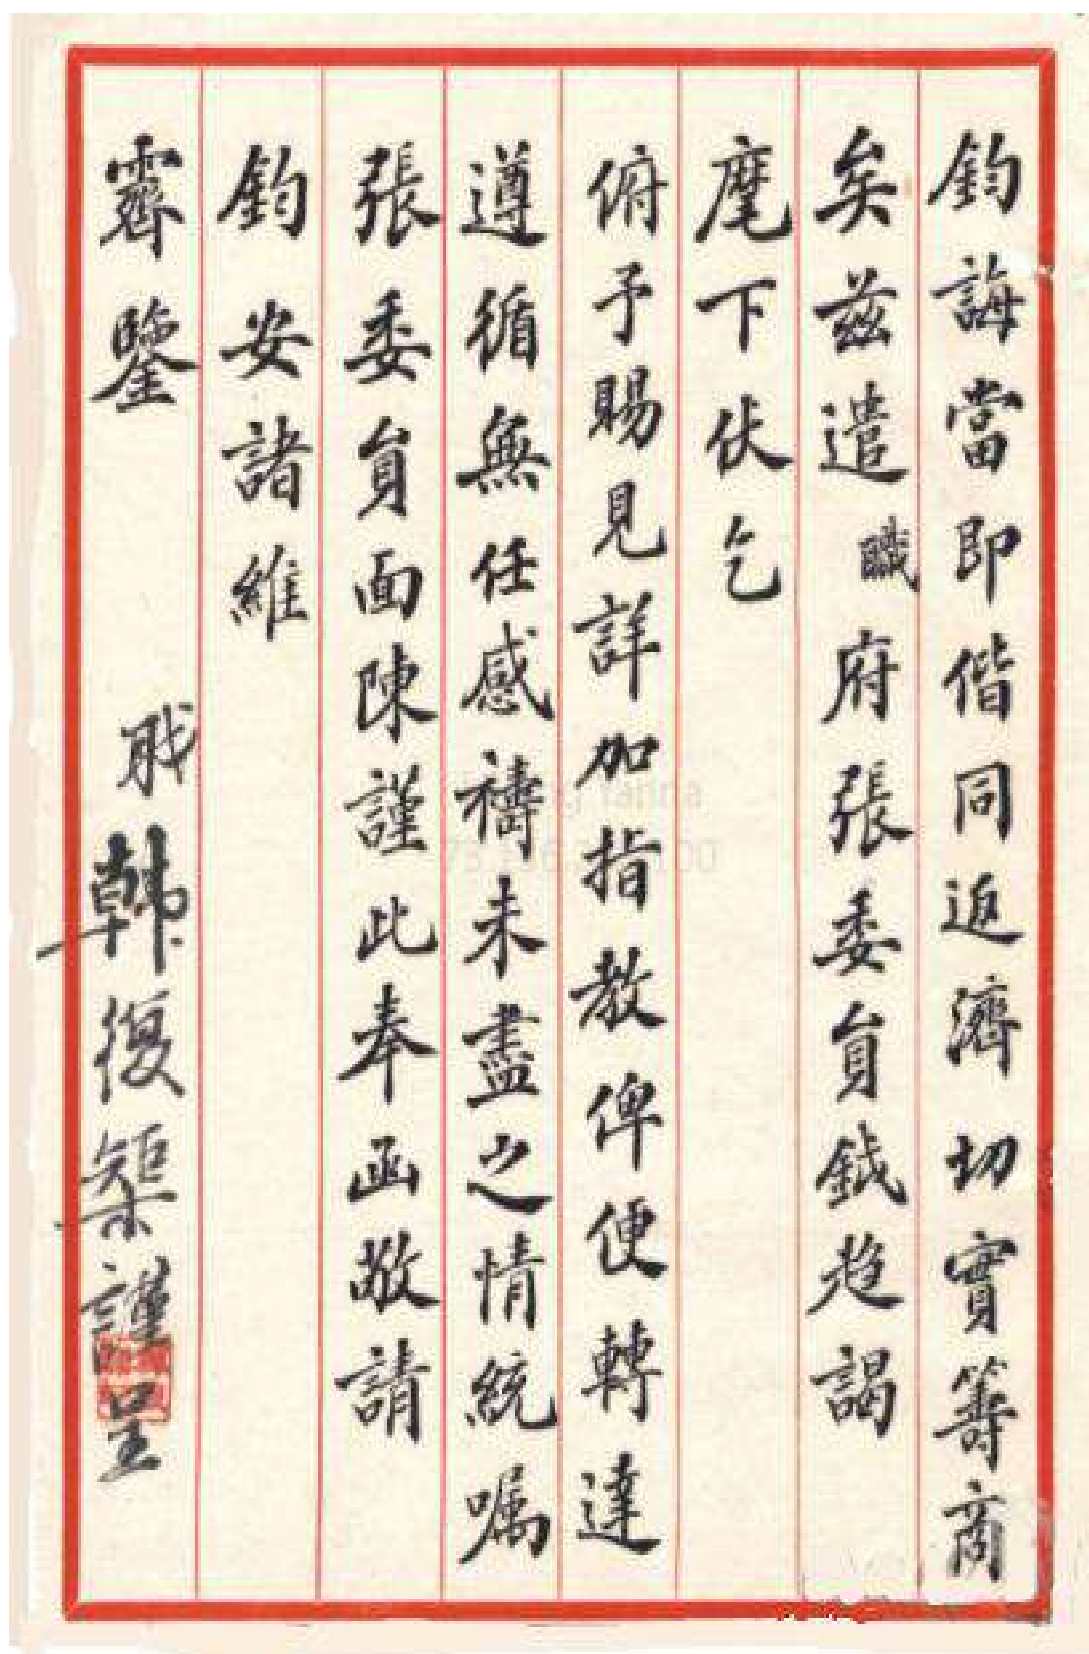 鈞誨當即偕同返濟切實籌商
矣茲遣職府張委員鉞趨謁
麾下伏乞
俯予賜見詳加指教俾便轉達
遵循無任感禱未盡之情統嘱
張委員面陳謹此奉函敬請
鈞安諸維
霽鑒 职韩復榘謹呈